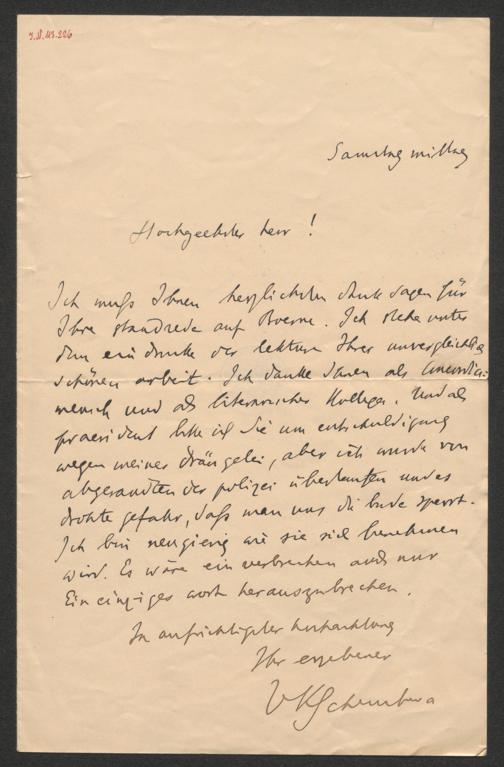 J.N. 113.226
Samstag mittag
Hochgeehrter herr!
Ich muss Ihnen herzlichsten dank sagen für
Ihre standrede auf Boerne. Ich stehe unter
dem eindrucke der lektüre Ihrer unvergleichlich
schönen arbeit. Ich danke Ihnen als Concordia-
mensch und als literarischer Kollege. Und als
praesident bitte ich Sie um entschuldigung
wegen meiner drängelei, aber ich wurde von
abgesandten der polizei überlaufen und es
drohte gefahr, daß man uns die bude sperrt.
Ich bin neugierig wie sie sich benehmen
wird. Es wäre ein verbrechen auch nur
Ein einziges wort herauszubrechen.
In aufrichtigster hochachtung
Ihr ergebener